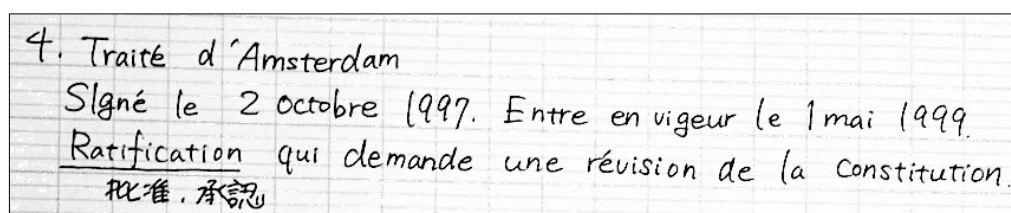 4. Traité d'Amsterdam
Signé le 2 octobre 1997. Entre en vigeur le 1 mai 1999.
Ratification qui demande une révision de la Constitution.
批准、承認